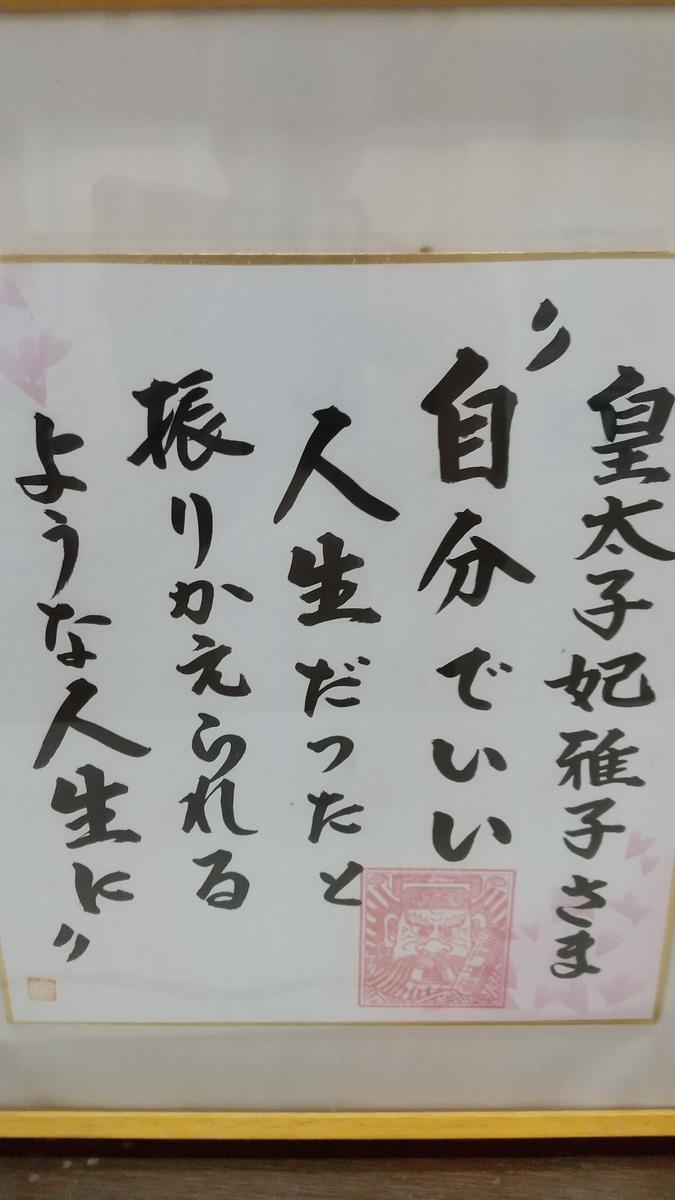 皇太子妃雅子さま
〃自分でいい
人生だったと
振りかえられる
ような人生に〃